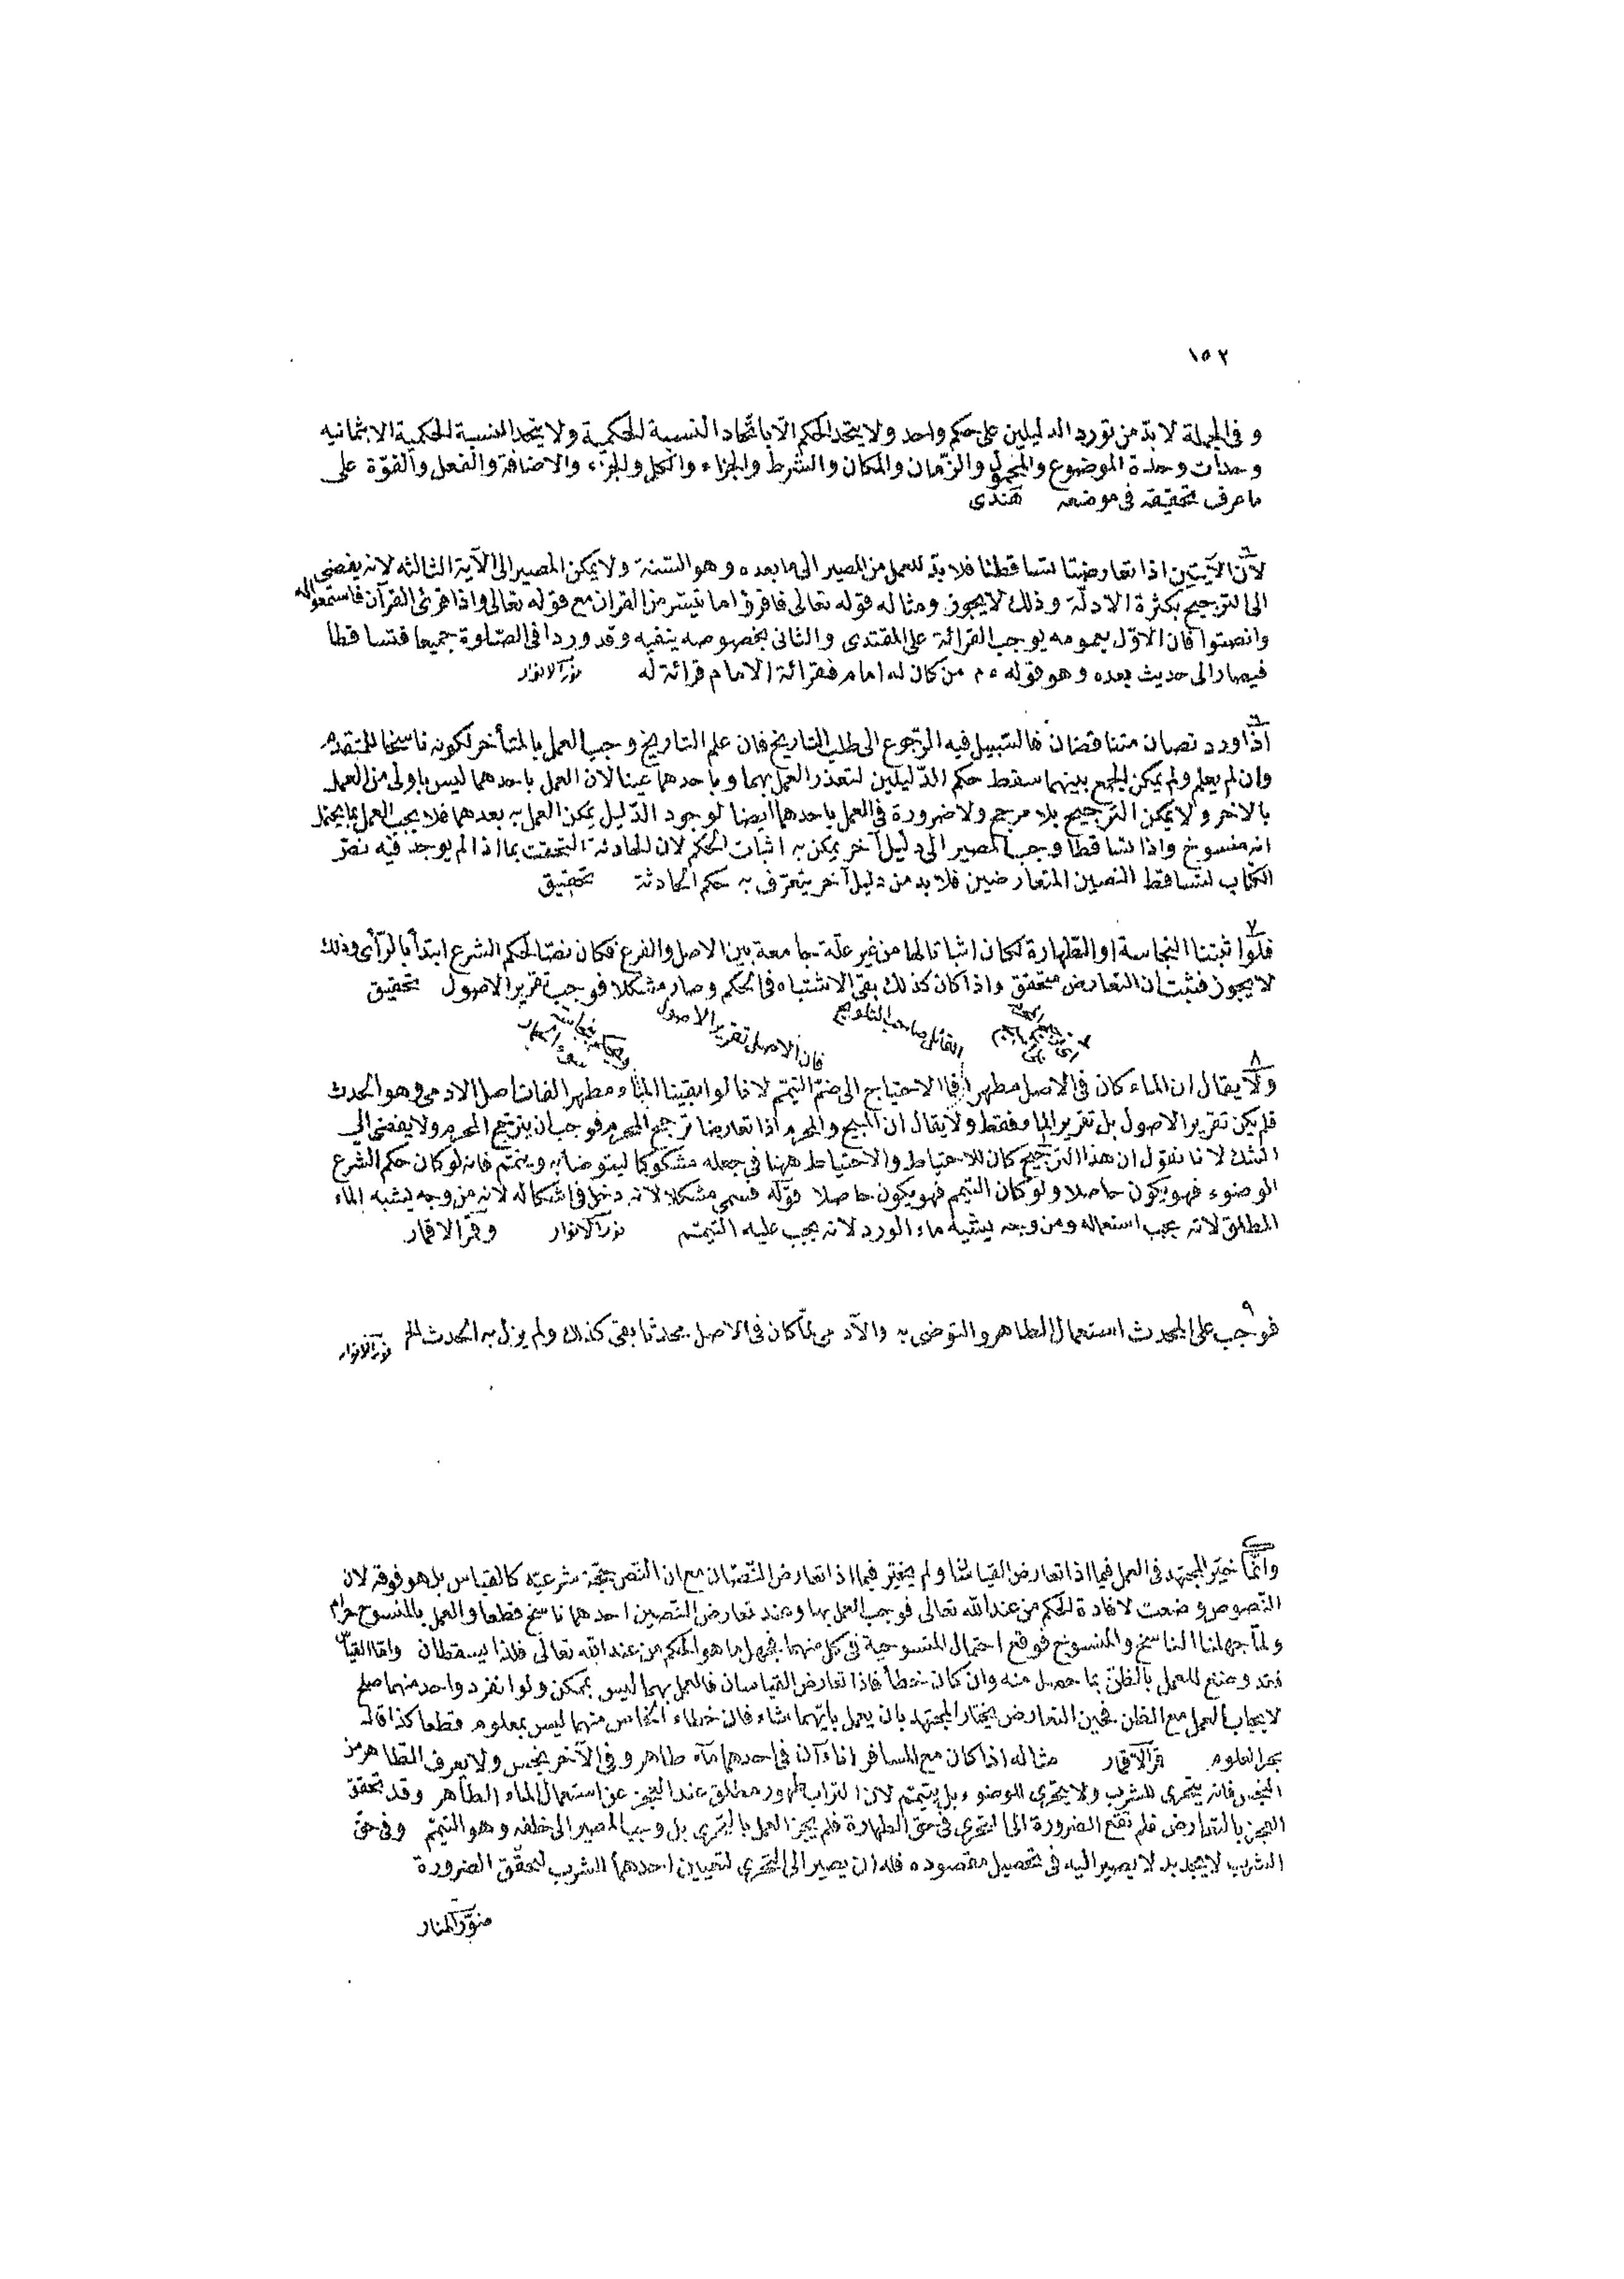 ١٥٢
و فى الجملة لا بدّ من تورد الدليلين على حكم واحد ولا يتحد الحكم الّا باتّحاد النسبة الحكمية ولا يتحد النسبة الحكمية الا بثمانيه
وحدات وحدة الموضوع والمحمول والزّمان والمكان والشرط والجزاء والكل والجزء والاضافة والفعل والقوّة على
ما عرف تحقيقه فى موضعه هندى
٦
لانّ الآيتين اذا تعارضتا تساقطتا فلا بدّ للعمل من المصير الى ما بعده وهو السّنة ولا يمكن المصير الى الآية الثالثه لانه يفضى
الى الترجيح بكثرة الادلّة وذلك لا يجوز ومثاله قوله تعالى فاقرؤا ما تيسّر من القران مع قوله تعالى واذا قرئ القرآن فاستمعوا له
وانصتوا فان الاوّل بعمومه يوجب القرائة على المقتدى والثانى بخصوصه ينفيه وقد وردا فى الصّلوة جميعا فتساقطا
فيصار الى حديث بعده وهو قوله ءم من كان له امام فقرائة الامام قرائة له نور الانوار
٦
اذا ورد نصان متناقضان فالسّبيل فيه الرّجوع الى طلب التاريخ فان علم التاريخ وجب العمل بالمتأخر لكونه ناسخا للمتقدم
وان لم يعلم ولم يمكن الجمع بينهما سقط حكم الدّليلين لتعذر العمل بهما وباحدهما عينا لان العمل باحدهما ليس باولى من العمل
بالاخر ولا يمكن الترجيح بلا مرجح ولا ضرورة فى العمل باحدهما ايضا لوجود الدّليل يمكن العمل به بعدهما فلا يجب العمل بما يحتمل
انه منسوخ واذا تساقطا وجب المصير الى دليل آخر يمكن به اثبات الحكم لان الحادثة التحقت بما اذا لم يوجد فيه نصّ
الكتاب لتساقط النصين المتعارضين فلا بد من دليل آخر يتعرّف به حكم الحادثة تحقيق
٧
فلو اثبتنا النجاسة او الطّهارة لكان اثباتا لها من غير علّة جامعة بين الاصل والفرع فكان نصّا لحكم الشرع ابتدأ بالرّأى وذلك
لا يجوز فثبت ان التعارض متحقق واذا كان كذلك بقى الاشتباه فى الحكم وصار مشكلا فوجب تقرير الاصول تحقيق
القائل صاحب التلويح
فان الاصل تقرير الاصول
٨
ولا يقال ان الماء كان فى الاصل مطهرا فما الاحتياج الى ضمّ التيمّم لانا لو ابقينا الماء مطهرا لفات اصل الادمى وهو الحدث
فلم يكن تقرير الاصول بل تقرير الماء فقط ولا يقال ان المبيح والمحرم اذا تعارضا ترجح المحرم فوجب ان يترجح المحرم ولا يفضى الى
الشك لانا نقول ان هذا الترجيح كان للاحتياط والاحتياط ههنا فى جعله مشكوكا ليتوضأ به ويتمّم فانه لو كان حكم الشّرع
الوضوء فهو يكون حاصلا ولو كان التيمم فهو يكون حاصلا قوله فسمى مشكلا لانه دخل فى اشكاله لانه من وجه يشبه الماء
المطلق لانّه يجب استعماله ومن وجه يشبه ماء الورد لانه يجب عليه التيمّم نور الانوار وقمر الاقمار
٩
فوجب على المحدث استعمال الطاهر والتوضى به والآدمى لمّا كان فى الاصل محدثا بقى كذلك ولم يزل به الحدث الخ نور الانوار
وانّما خيّر المجتهد فى العمل فيما اذا تعارض القياسان ولم يخيّر فيما اذا تعارض النّصّان مع ان النّص حجّة شرعيّه كالقياس بل هو فوقه لان
النّصوص وضعت لافادة الحكم من عند الله تعالى فوجب العمل بها وعند تعارض النّصين احدهما ناسخ قطعا والعمل بالمنسوخ حرام
ولمّا جهلنا الناسخ والمنسوخ فوقع احتمال المنسوخية فى كل منهما فجهل ما هو الحكم من عند الله تعالى فلذا يسقطان وامّا القياس
فقد وضع للعمل بالظنّ بما حصل منه وان كان خطأ فاذا تعارض القياسان فالعمل بهما ليس بممكن ولو انفرد واحد منهما صلح
لايجاب العمل مع الظن فحين التعارض يختار المجتهد بان يعمل بايّهما شاء فان خطاء الخاص منهما ليس بمعلوم قطعا كذا قاله
بحر العلوم قمر الاقمار مثاله اذا كان مع المسافر اناءآن فى احدهما ماء طاهر وفى الآخر نجس ولا يعرف الطّاهر من
النّجس فانه يتحرى للشرب ولا يتحرّى للوضوء بل يتيمّم لان التراب طهور مطلق عند العجز عن استعمال الماء الطّاهر وقد تحقق
العجز بالتعارض فلم تقع الضرورة الى التحرى فى حق الطهارة فلم يجز العمل بالتحرى بل وجب المصير الى خلفه وهو التيمّم وفى حق
الشرب لا يجد بد لا يصير اليه فى تحصيل مقصوده فله ان يصير الى التحرى لتعيين احدهما للشرب لتحقّق الضرورة
منوّر المنار